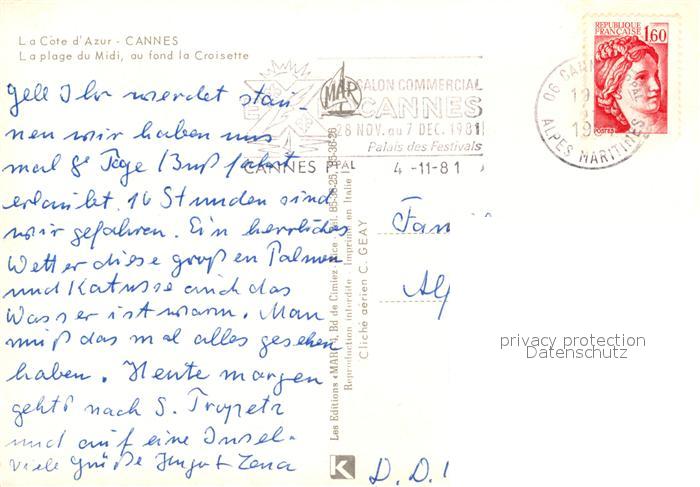 La Côte d'Azur - CANNES
La plage du Midi, au fond la Croisette
Gell Ihr werdet stau-
nen wir haben uns
mal 8 Tage Bußfahrt
erlaubt. 16 Stunden sind
wir gefahren. Ein herrliches
Wetter diese großen Palmen
und Katusse auch das
Wasser ist warm. Man
muß das mal alles gesehen
haben. Heute morgen
gehts nach S. Tropetz
und auf eine Insel.
viele Grüße
SALON COMMERCIAL
CANNES
28 NOV. au 7 DEC. 1981
Palais des Festivals
CANNES PPAL
4 -11-81
06 CANNES PPAL
ALPES MARITIMES
REPUBLIQUE
FRANÇAISE
1,60
POSTES
Les Editions «MAR», Bd de Cimiez
Reproduction interdite - Imprimé en Italie
Cliché aérien C. GEAY
Fam
K
D.D.
privacy protection
Datenschutz